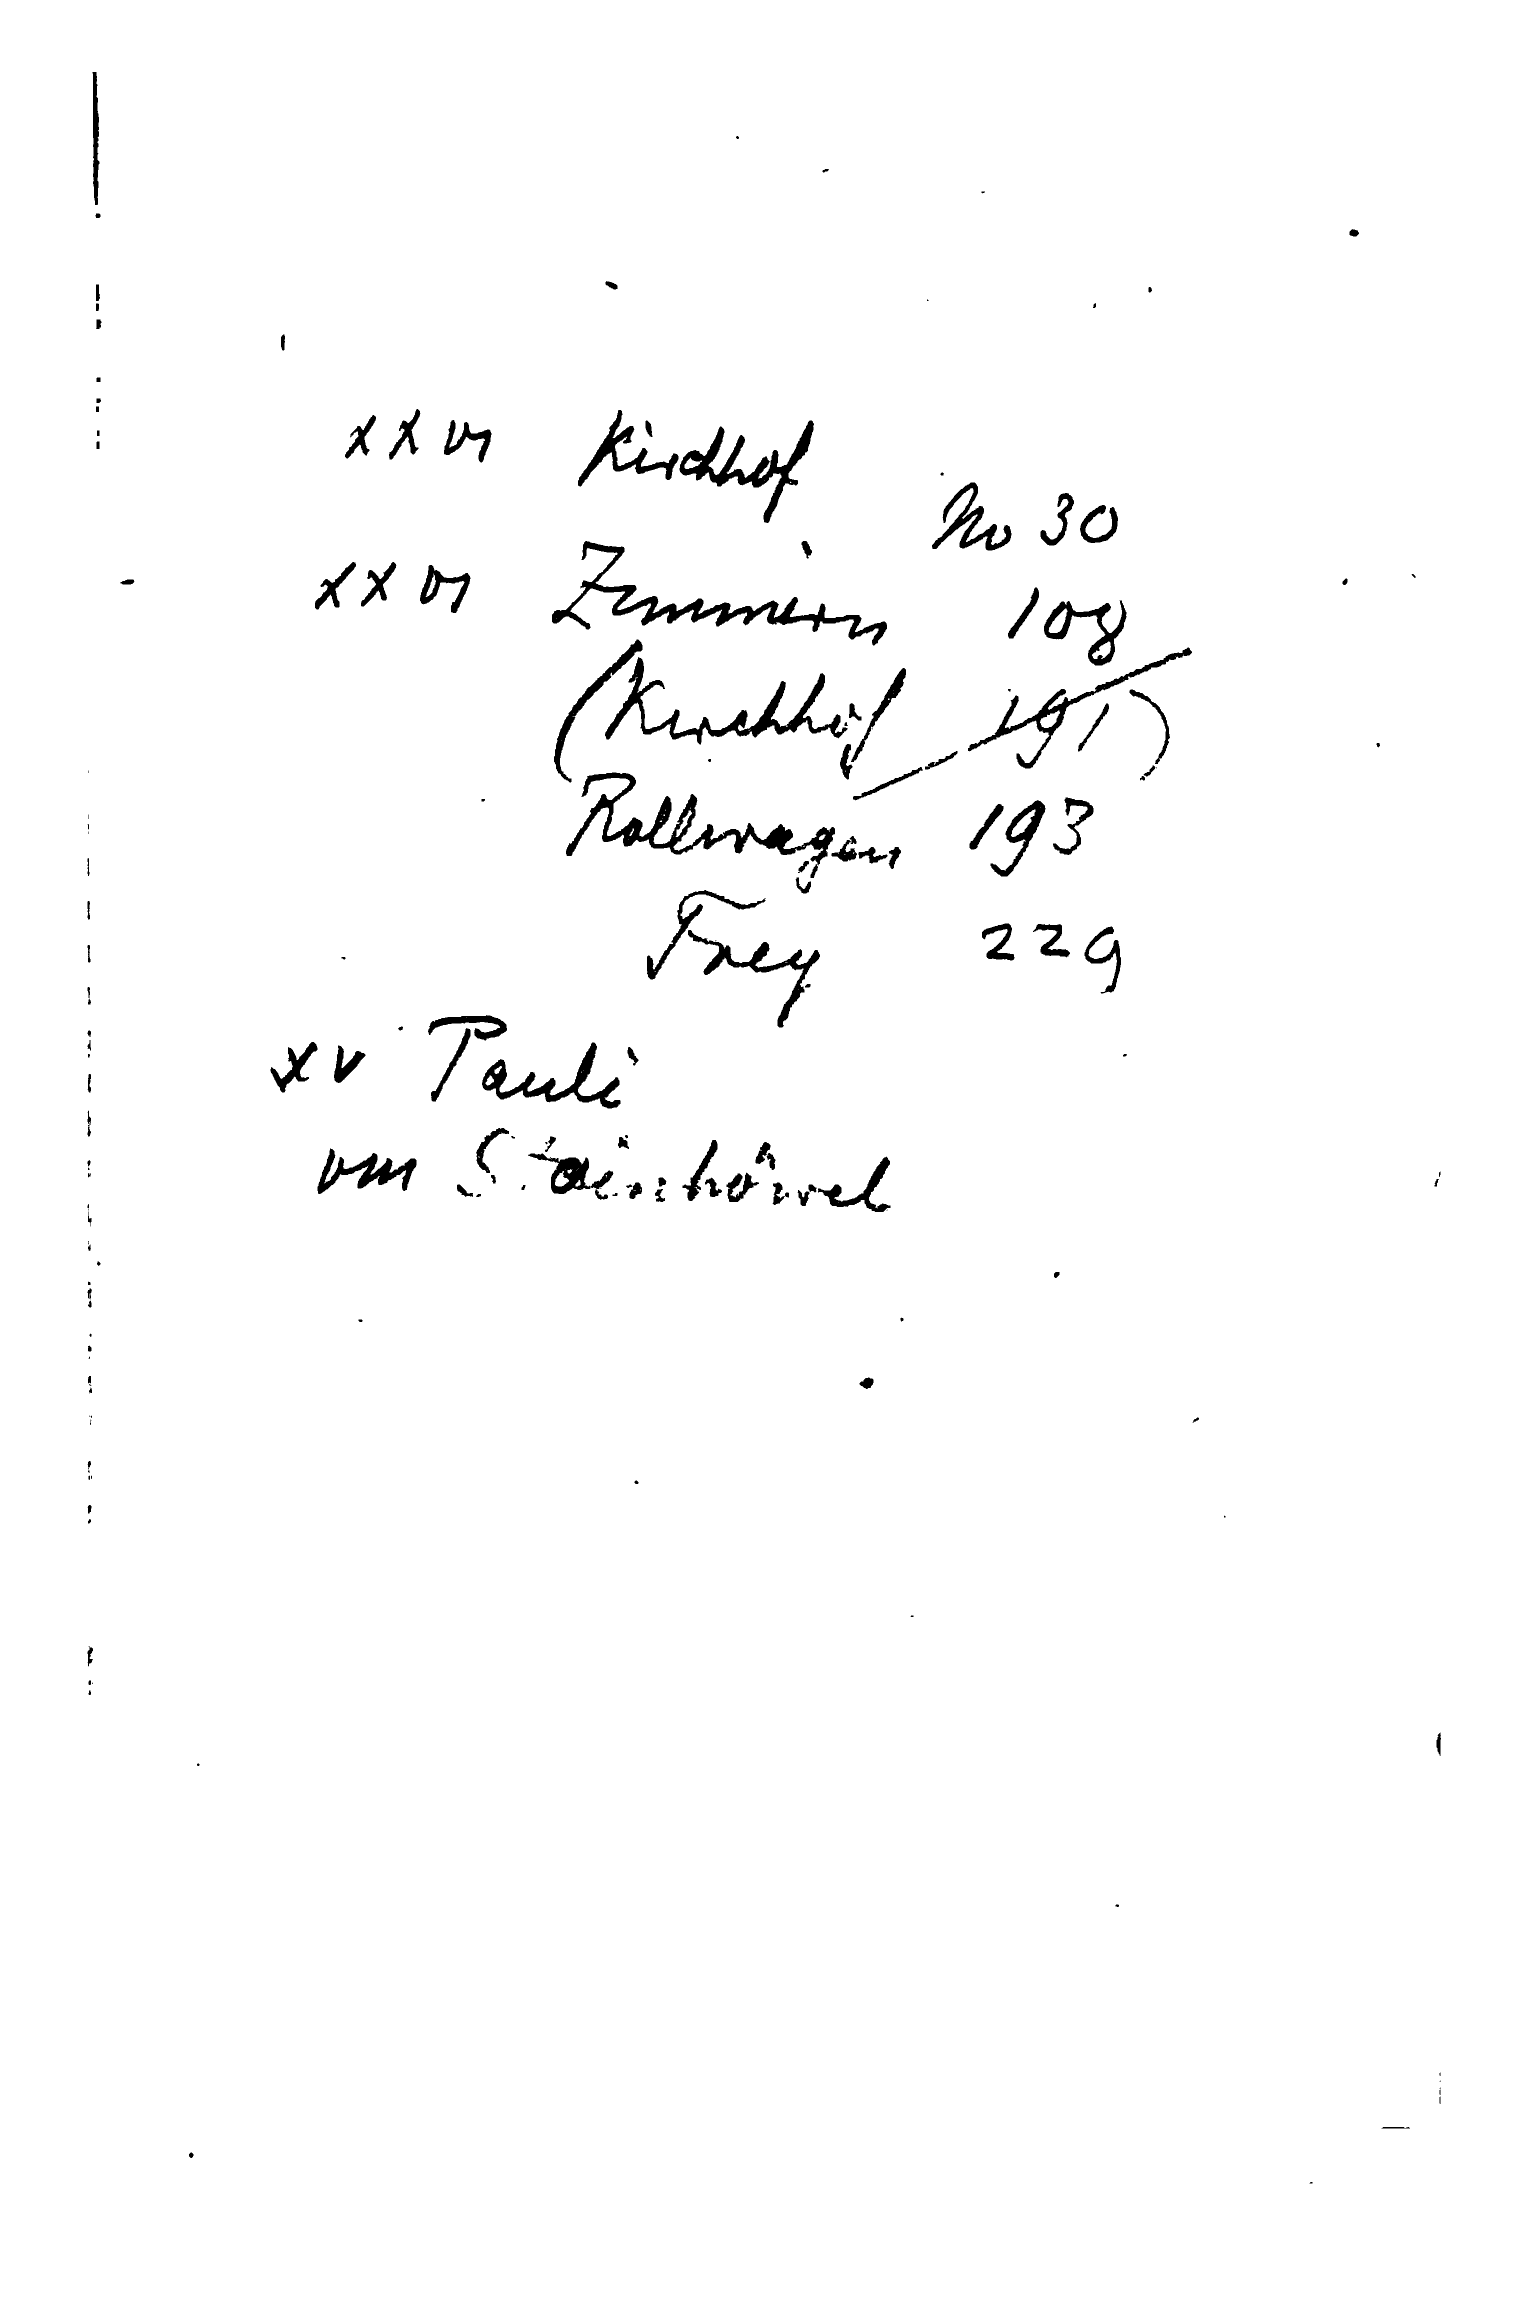 xxvi Kirchhof
No 30
xxvi Zimmern 108
(Kirchhof 191)
Rollwagen 193
Frey 229
xv Pauli
vm Steinhöwel